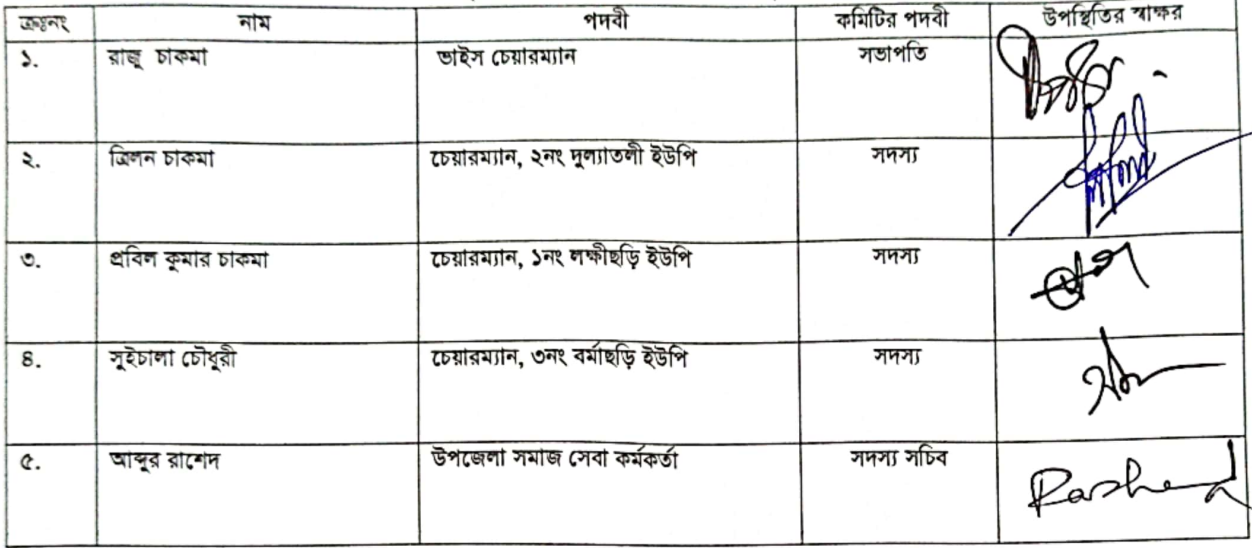 ক্রঃনং নাম পদবী কমিটির পদবী উপস্থিতির স্বাক্ষর
১. রাজু চাকমা ভাইস চেয়ারম্যান সভাপতি
২. ত্রিলন চাকমা চেয়ারম্যান, ২নং দুল্যাতলী ইউপি সদস্য
৩. প্রবিল কুমার চাকমা চেয়ারম্যান, ১নং লক্ষীছড়ি ইউপি সদস্য
৪. সুইচালা চৌধুরী চেয়ারম্যান, ৩নং বর্মাছড়ি ইউপি সদস্য
৫. আব্দুর রাশেদ উপজেলা সমাজ সেবা কর্মকর্তা সদস্য সচিব Rashed